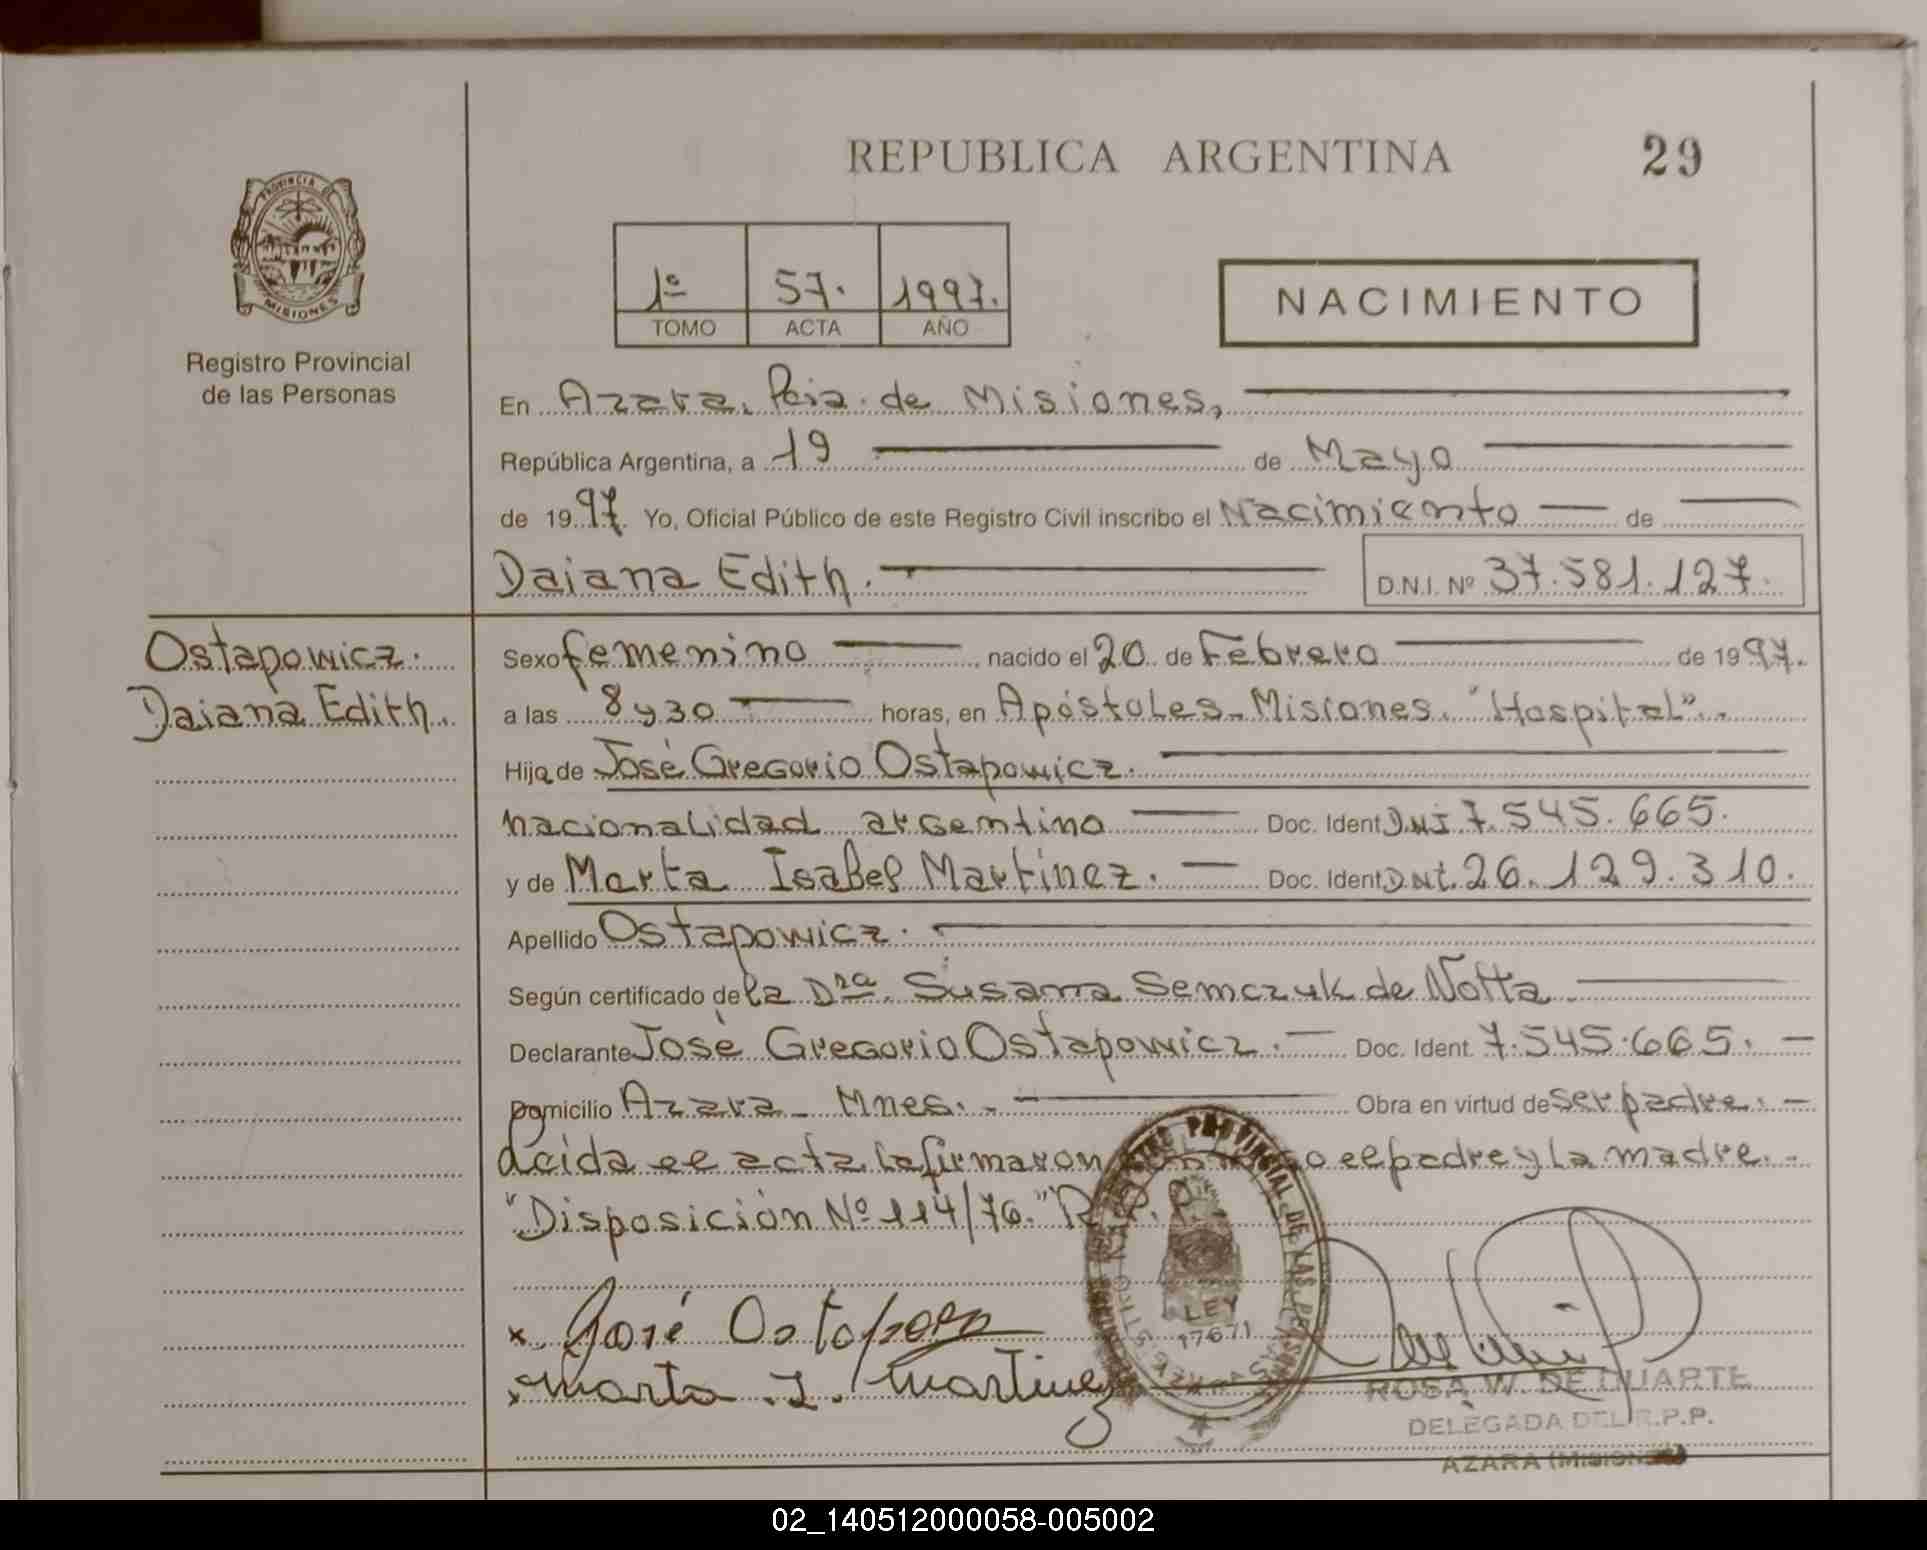 REPUBLICA ARGENTINA
29
PROVINCIA DE
MISIONES
Registro Provincial
de las Personas
1º 57. 1997.
TOMO ACTA AÑO
NACIMIENTO
En Azara, Pcia. de Misiones,
República Argentina, a 19 de Mayo
de 1997. Yo, Oficial Público de este Registro Civil inscribo el Nacimiento de
Daiana Edith. D.N.I. Nº 37.581.127.
Ostapowicz.
Daiana Edith.
Sexo femenino nacido el 20 de Febrero de 1997.
a las 8 y 30 horas, en Apóstoles- Misiones. "Hospital".
Hija de José Gregorio Ostapowicz.
nacionalidad argentino Doc. Ident DNI 7.545.665.
y de Marta Isabel Martínez. Doc. Ident DNI. 26.129.310.
Apellido Ostapowicz.
Según certificado de la Dra. Susana Semczuk de Notta
Declarante José Gregorio Ostapowicz. Doc. Ident. 7.545.665.
Domicilio Azara - Mnes. Obra en virtud de ser padre.
Leida el acta la firmaron el padre y la madre.
"Disposición Nº 114/76." R.P.P.
x José
x Marta I. Martinez
PROVINCIAL DE LAS
LEY
17671
ROSA W. DE DUARTE
DELEGADA DEL R.P.P.
AZARA (MISIONES)
02_140512000058-005002